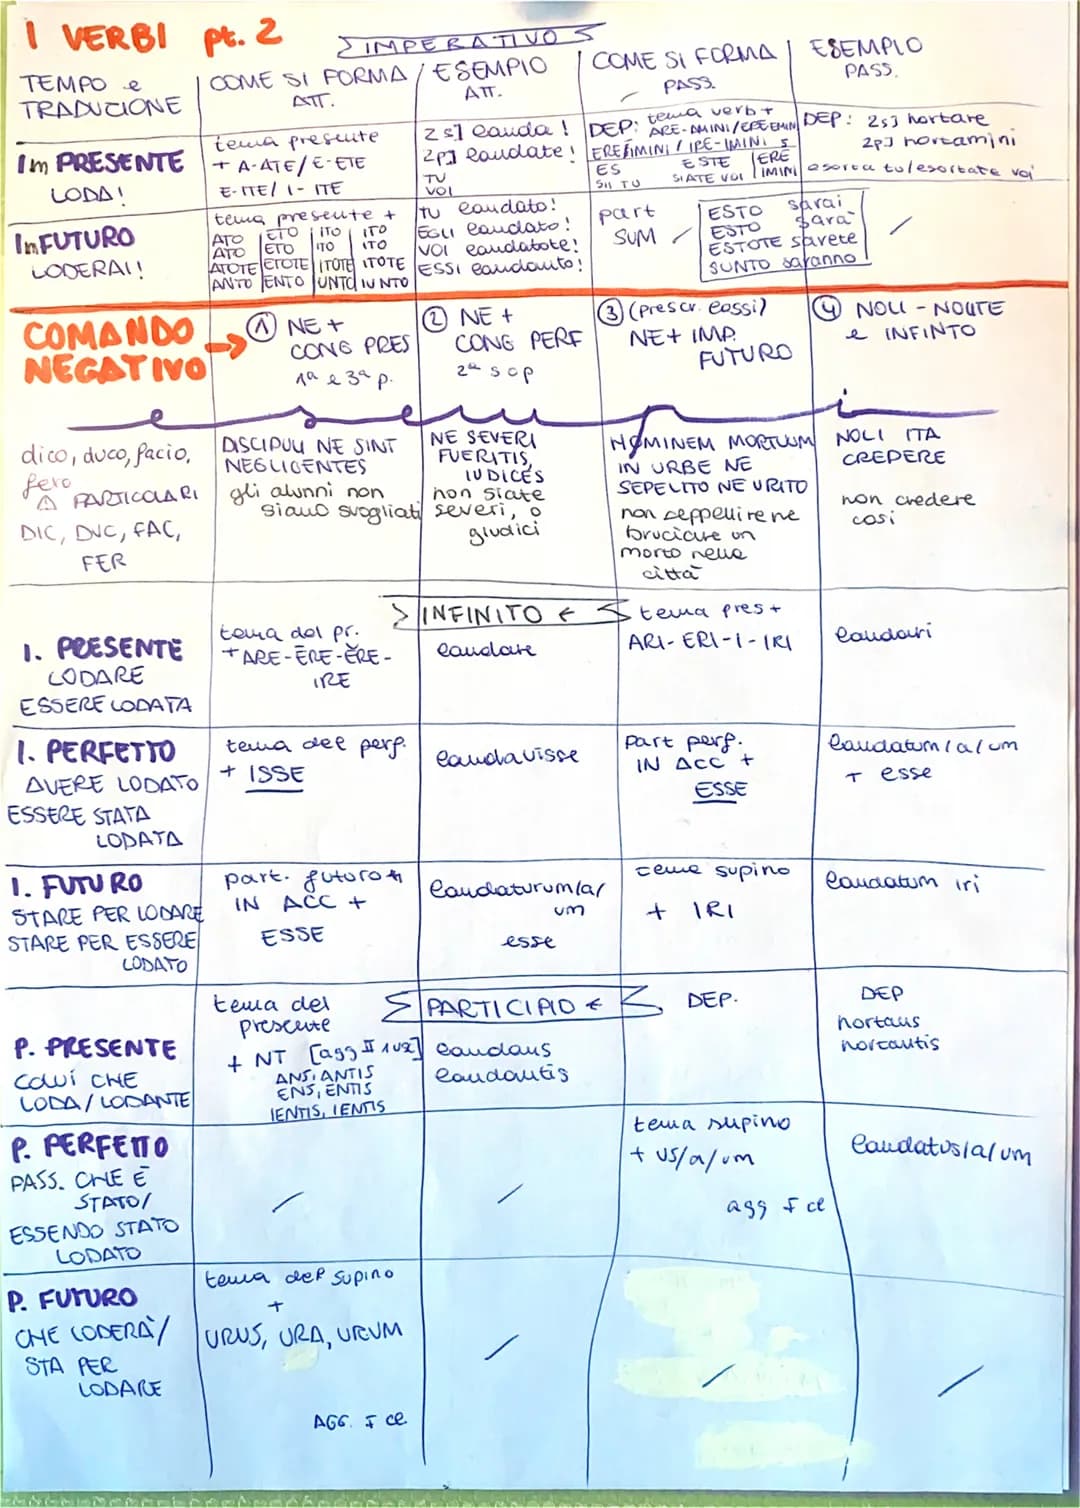 I VERBI pt. 2
IMPERATIVO
TEMPO e TRADUZIONE
COME SI FORMA ATT.
ESEMPIO ATT.
COME SI FORMA PASS.
ESEMPIO PASS.
Im PRESENTE
LODA!
tema presente
+ A-ATE/E-ETE
E-ITE/ I-ITE
2s] lauda!
2p] laudate!
TU
VOI
DEP: tema verb +
ARE-AMINI/ERE EMINI
ERE/IMINI / IRE-IMINI
ES
SII TU
ESTE
SIATE VOI
ERE
IMINI
DEP: 2s] hortare
2p] hortamini
esorta tu/esortate voi
Im FUTURO
LODERAI!
tema presente +
ATO | ETO | ITO | ITO
ATO | ETO | ITO | ITO
ATOTE | ETOTE | ITOTE | ITOTE
ANTO | ENTO | UNTO | IUNTO
TU laudato!
EGLI laudato!
VOI laudatote!
ESSI laudanto!
part
SUM
ESTO sarai
ESTO sarà
ESTOTE sarete
SUNTO saranno
COMANDO NEGATIVO
1 NE +
CONG PRES
1ª e 3ª p.
2 NE +
CONG PERF
2ª s o p
3 (prescr. lossi)
NE + IMP.
FUTURO
4 NOLI - NOLITE
e INFINTO
esempi
dico, duco, facio,
fero
PARTICOLARI
DIC, DUC, FAC,
FER
DISCIPULI NE SINT
NEGLIGENTES
gli alunni non
siano svogliati
NE SEVERI
FUERITIS,
IUDICES
non siate
severi, o
giudici
HOMINEM MORTUUM
IN URBE NE
SEPELITO NE URITO
non seppellire ne
bruciare un
morto nella
città
NOLI ITA
CREDERE
non credere
così
INFINITO
I. PRESENTE
LODARE
ESSERE LODATA
tema del pr.
+ ARE-ĒRE-ĔRE-
IRE
laudare
tema pres +
ARI-ERI-I-IRI
laudari
I. PERFETTO
AVERE LODATO
ESSERE STATA
LODATA
tema del perf.
+ ISSE
laudavisse
part perf.
IN ACC +
ESSE
laudatum/a/um
+ esse
I. FUTURO
STARE PER LODARE
STARE PER ESSERE
LODATO
part. futuro
IN ACC +
ESSE
laudaturum/a/
um
esse
tema supino
+ IRI
laudatum iri
PARTICIPIO
P. PRESENTE
COLUI CHE
LODA/LODANTE
tema del
presente
+ NT [agg II 1 usc]
ANS, ANTIS
ENS, ENTIS
IENTIS, IENTIS
laudans
laudantis
DEP.
DEP
hortans
hortantis
P. PERFETTO
PASS. CHE È
STATO/
ESSENDO STATO
LODATO
tema supino
+ US/a/um
agg I cl
laudatus/a/um
P. FUTURO
CHE LODERÀ/
STA PER
LODARE
tema del supino
+
URUS, URA, URUM
AGG. I cl